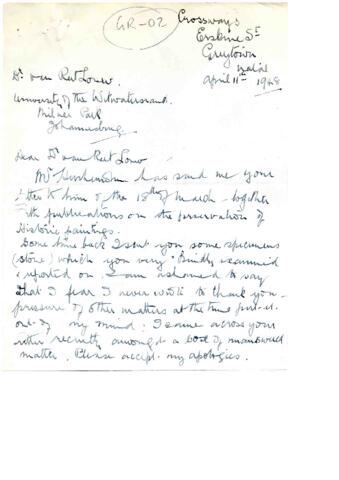 GR-02
Crossways
Erskine St.
Greytown
Natal
April 11th 1948
Dr van Riet Lowe.
University of the Witwatersrand.
Milner Park
Johannesburg
Dear Dr van Riet Lowe
Mr has sent me your
letter to him of the 18th of March - together
with publications on the preservation of
Historic paintings.
Some time back I sent you some specimens
(stone) which you very kindly examined
reported on. I am ashamed to say
that I fear I never wrote to thank you -
pressure of other matters at the time put it
out of my mind: I came across your
letter recently amongst a box of unanswered
matter. Please accept my apologies.